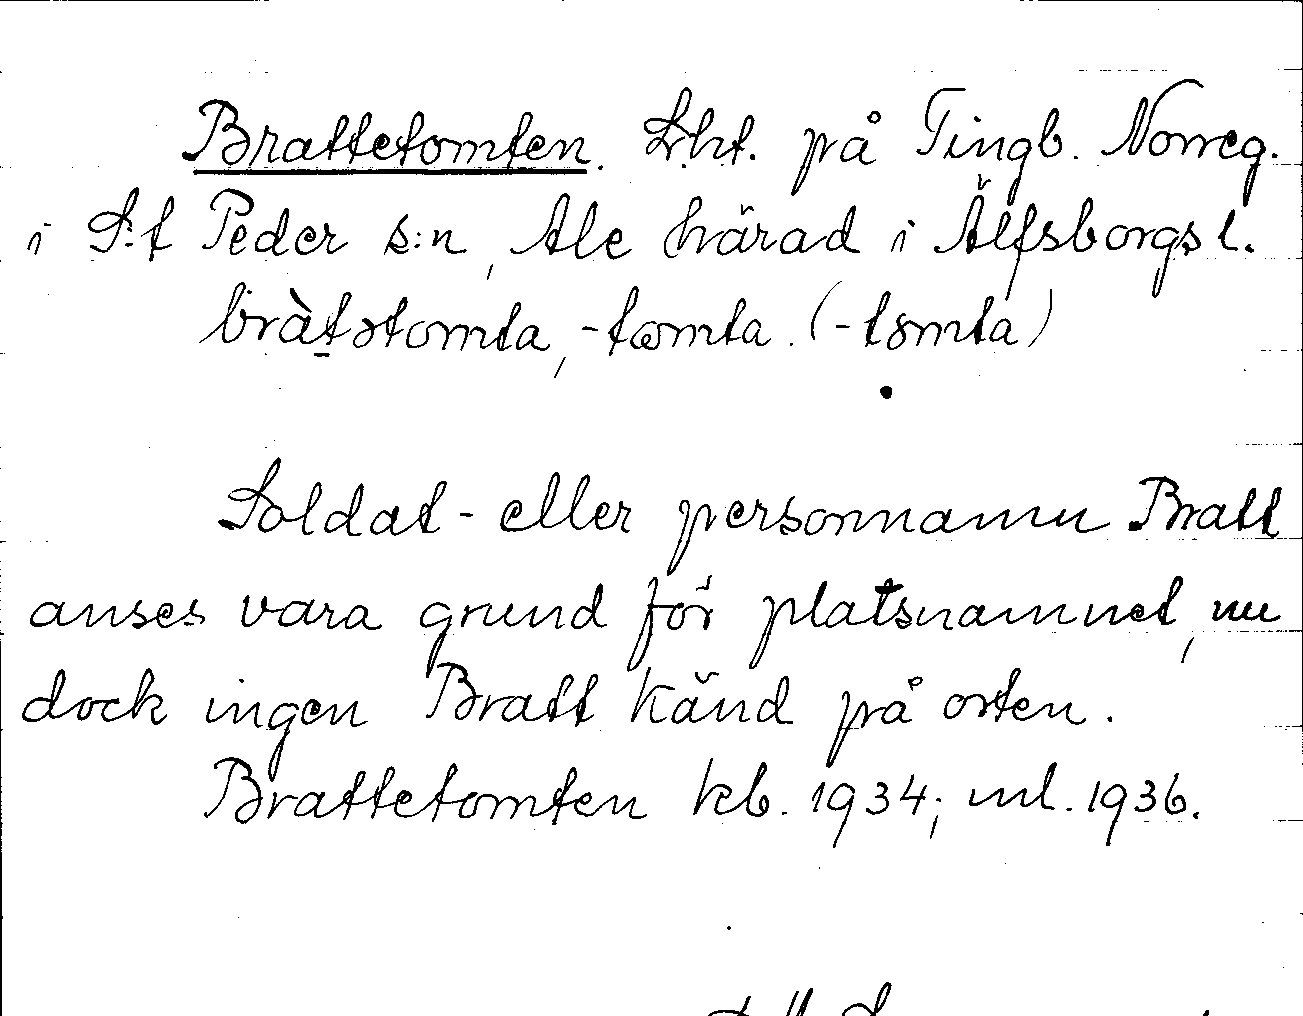 Brattetomten. Lht. på Tingb. Norreg.
i S:t Peder s:n, Ale härad i Älfsborgs l.
bràt̠ətomta, -tωmta. (-tომta)
Soldat- eller personnamn Bratt
anses vara grund för platsnamnet, nu
dock ingen Bratt känd på orten.
Brattetomten kb. 1934; ml. 1936.